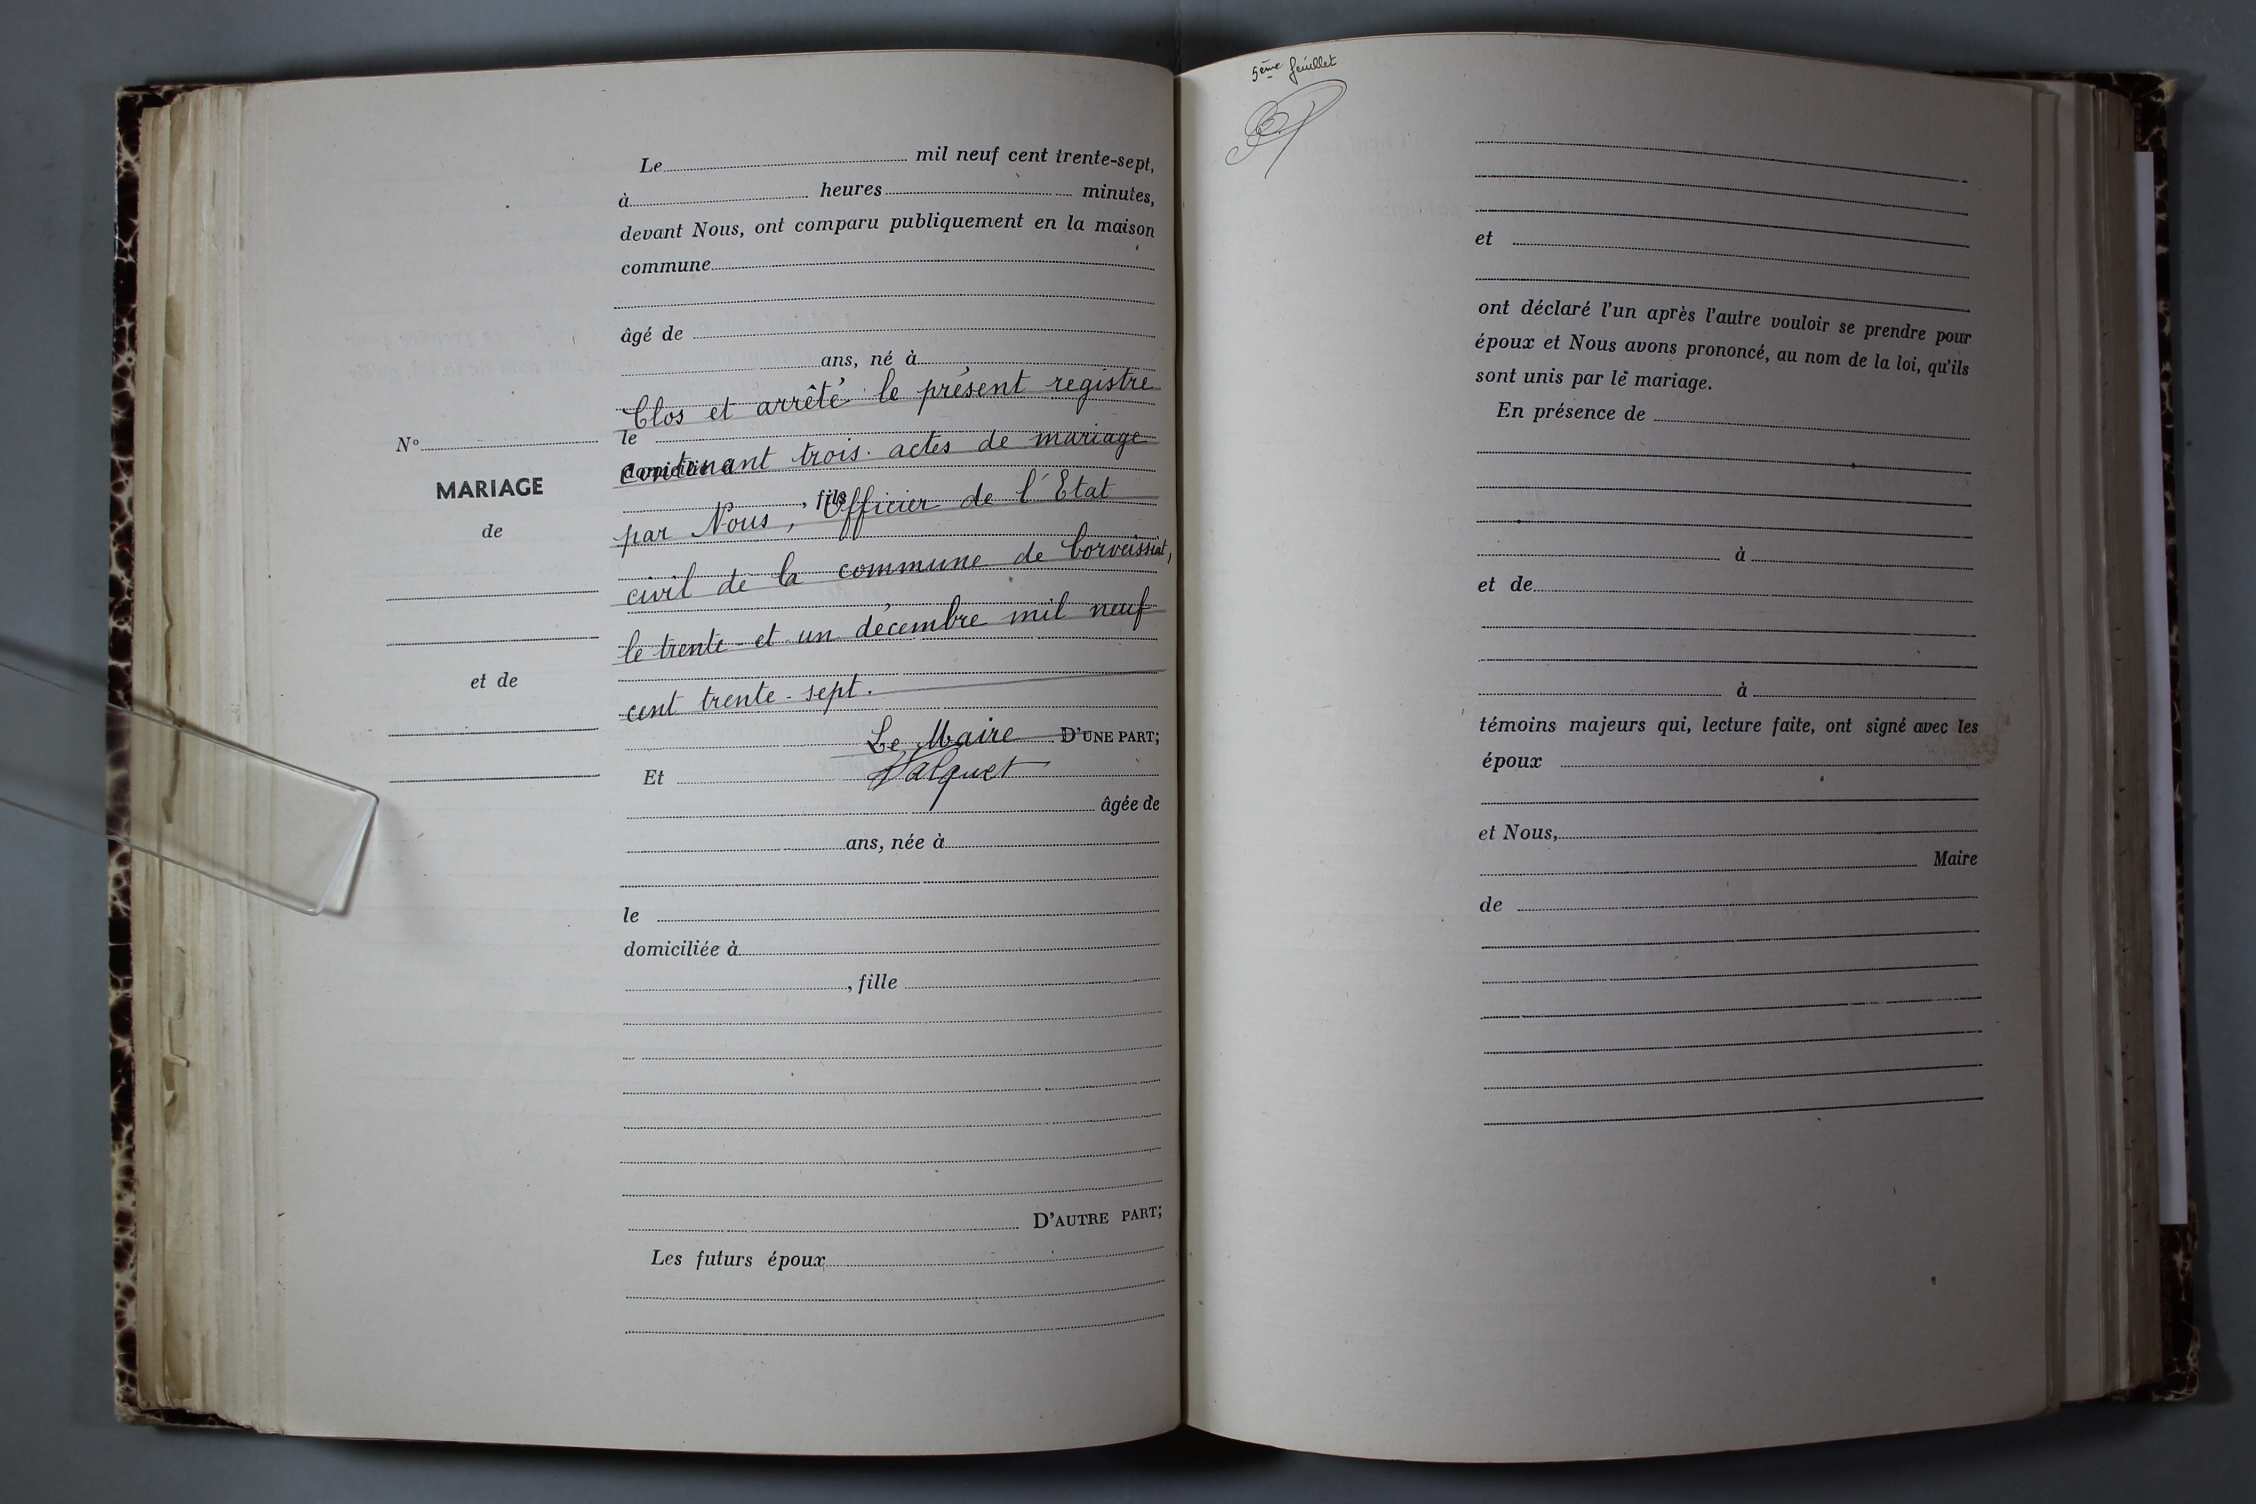 Le mil neuf cent trente-sept,
à heures minutes,
devant Nous, ont comparu publiquement en la maison
commune
âgé de
ans, né à
Clos et arrêté le présent registre
le
contenant trois actes de mariage
domicilié à
, fils
par Nous, Officier de l'Etat
civil de la commune de Corveissiat,
le trente-et un décembre mil neuf
cent trente-sept.
Le Maire D'UNE PART;
Et
âgée de
ans, née à
le
domiciliée à
, fille
D'AUTRE PART;
Les futurs époux
N°
MARIAGE
de
et de
5ème feuillet
et
ont déclaré l'un après l'autre vouloir se prendre pour
époux et Nous avons prononcé, au nom de la loi, qu'ils
sont unis par le mariage.
En présence de
à
et de
à
témoins majeurs qui, lecture faite, ont signé avec les
époux
et Nous,
Maire
de